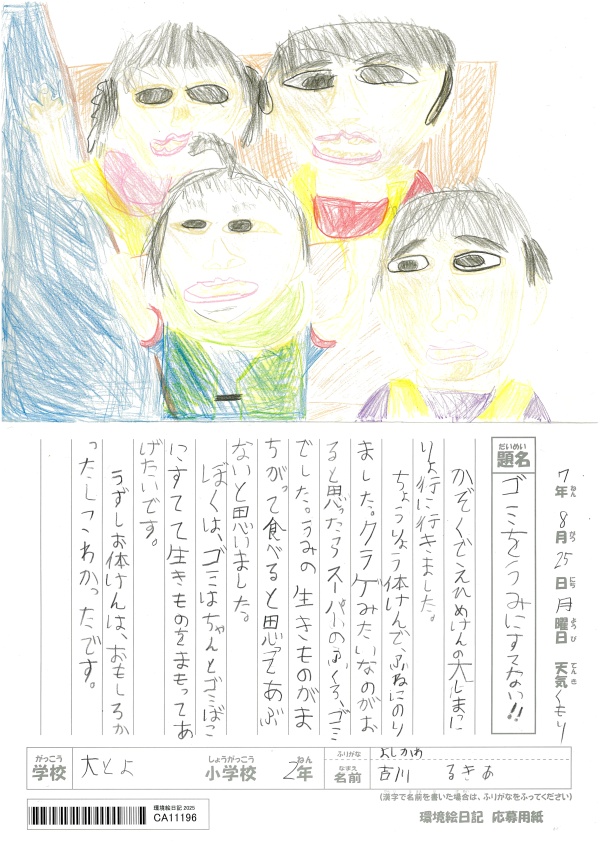 7年 8月 25日 月曜日 天気 くもり
ねん がつ にち ようび てんき
だいめい
題名
ゴミをうみにすてない!!
かぞくでえひめけんの大しまに
りょ行に行きました。
ちょうりゅう体けんで、ふねにのり
ました。クラゲみたいなのがお
ると思ったらスーパーのふくろ、ゴミ
でした。うみの生きものがま
ちがって食べると思ってあぶ
ないと思いました。
ぼくは、ゴミはちゃんとゴミばこ
にすてて生きものをまもってあ
げたいです。
うずしお体けんは、おもしろか
ったしこわかったです。
がっこう
学校
大とよ
しょうがっこう
小学校
2年
ねん
ふりがな
よしかわ
なまえ
名前
吉川 るきあ
(漢字で名前を書いた場合は、ふりがなをふってください)
環境絵日記 2025
CA11196
環境絵日記 応募用紙